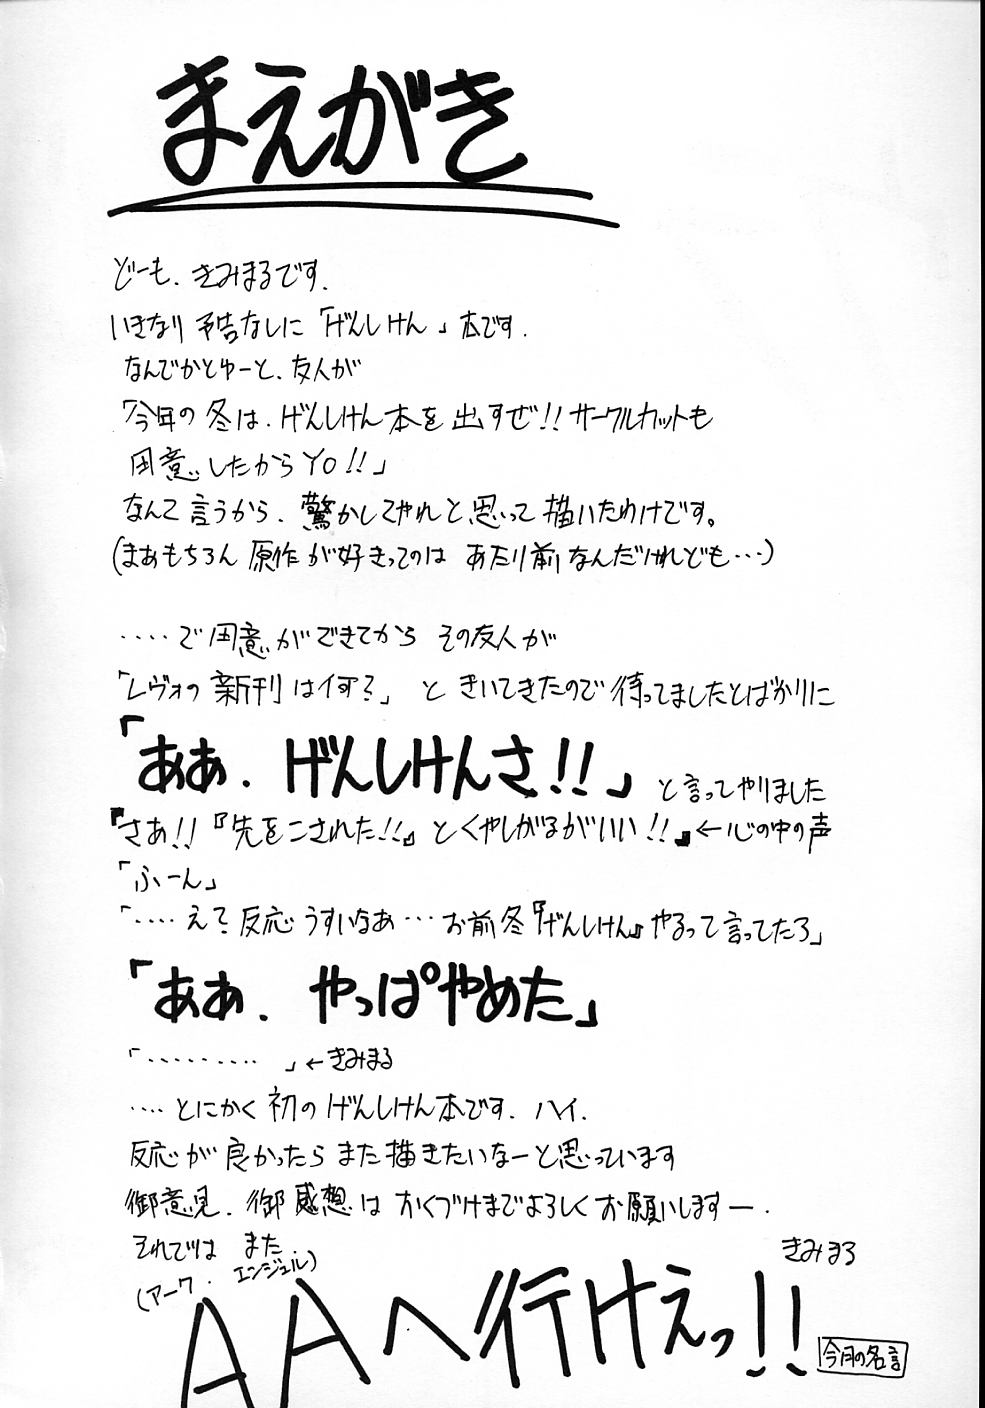 まえがき
どーも、きみまるです.
いきなり予告なしに「げんしけん」本です.
なんでかとゆーと、友人が
「今年の冬は、げんしけん本を出すぜ!!サークルカットも
用意したからYO!!」
なんて言うから、驚かしてやれと思って描いたわけです。
(まあもちろん原作が好きってのはあたり前なんだけれども…)
‥‥で用意ができてからその友人が
「レヴォの新刊は何?」ときいてきたので待ってましたとばかりに
「ああ、げんしけんさ!!」と言ってやりました
『さあ!!『先をこされた!!』とくやしがるがいい!!』←心の中の声
「ふーん」
「‥‥えて?反応うすいなあ…お前冬『げんしけん』やるって言ってたろ」
「ああ、やっぱやめた」
「‥‥‥‥‥」←きみまる
‥‥とにかく初のげんしけん本です.ハイ.
反応が良かったらまた描きたいなーと思っています
御意見、御感想はおくづけまでよろしくお願いしますー.
それではまた
きみまる
(アーク・エンジェル)
AAへ行けえっ!!
今月の名言